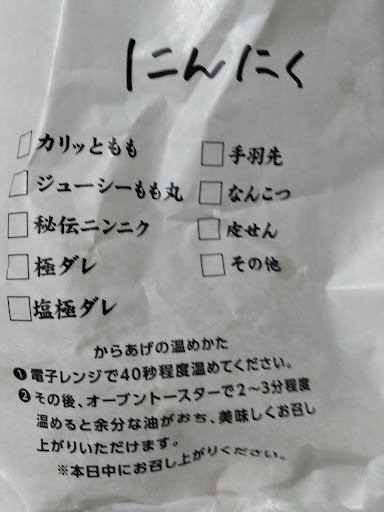 にんにく
□カリッともも
□ジューシーもも丸
□秘伝ニンニク
□極ダレ
□塩極ダレ
□手羽先
□なんこつ
□皮せん
□その他
からあげの温めかた
❶電子レンジで40秒程度温めてください。
❷その後、オーブントースターで2〜3分程度
温めると余分な油がおち、美味しくお召し
上がりいただけます。
※本日中にお召し上がりください。